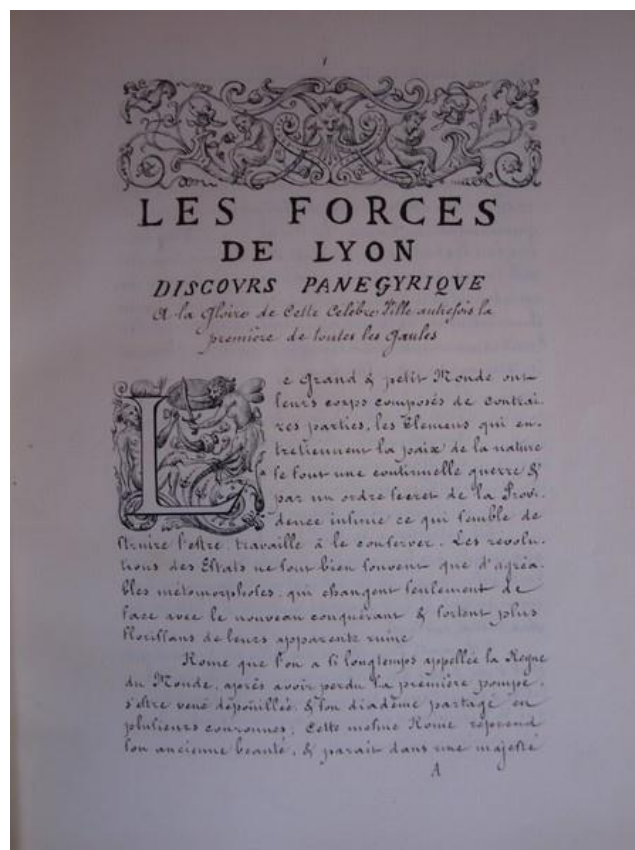 1
LES FORCES
DE LYON
DISCOVRS PANEGYRIQVE
A la Gloire de Cette Celebre Ville autrefois la
premiere de toutes les Gaules
Le Grand & petit Monde ont
leurs corps composés de contrai-
res parties, les Elemens qui en-
tretiennent la paix de la nature
se font une continuelle guerre &
par un ordre secret de la Provi-
dence infinie ce qui semble de
struire l'estre, travaille à le conserver. Les revolu-
tions des Estats ne sont bien souvent que d'agréa-
bles métomorphoses, qui changent seulement de
face avec le nouveau conquérant & sortent plus
florissans de leurs apparente ruine
Rome que l'on a si longtemps appellée la Reyne
du Monde, aprés avoir perdu sa première pompe,
s'estre veue dépoüillée, & son diadême partagé en
plusieurs couronnes; Cette mesme Rome reprend
son ancienne beauté, & parait dans une majesté
A